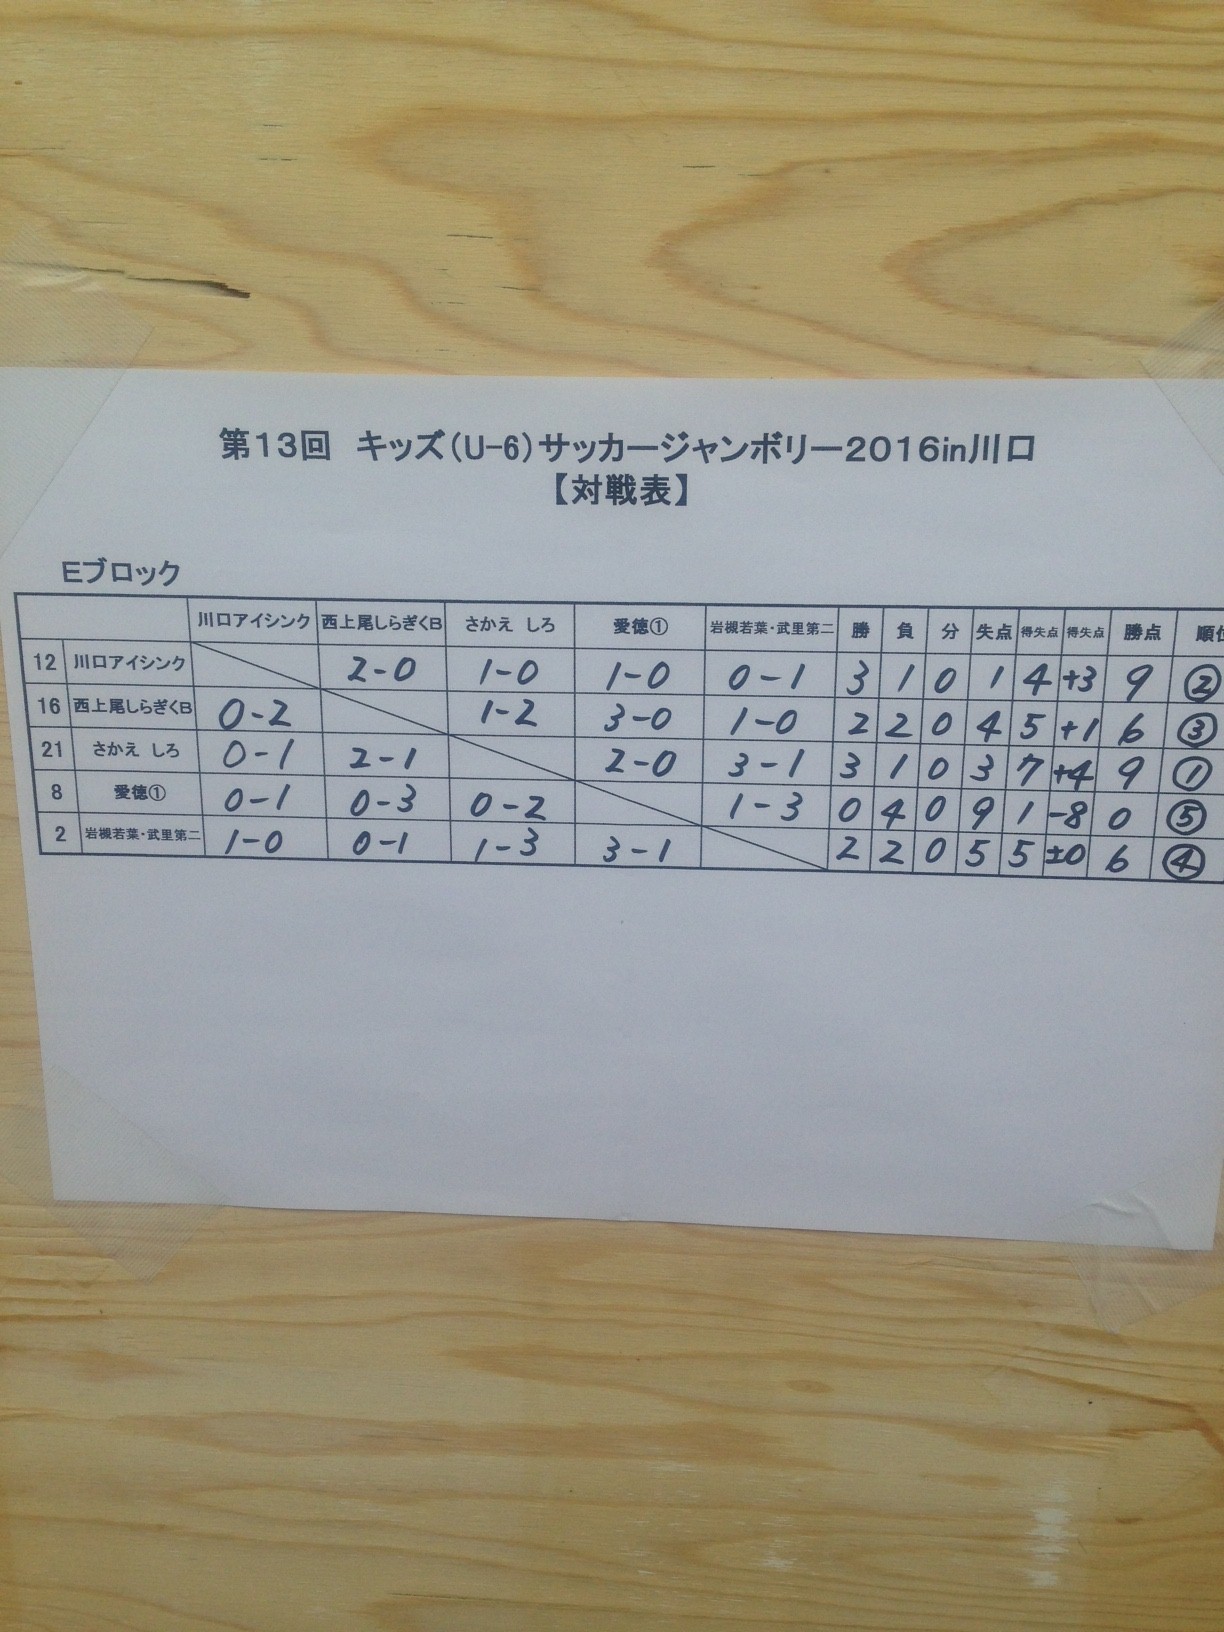 第13回 キッズ(U-6)サッカージャンボリー2016in川口
【対戦表】
Eブロック
川口アイシンク 西上尾しらぎくB さかえ しろ 愛徳① 岩槻若葉・武里第二 勝 負 分 失点 得失点 得失点 勝点 順位
12 川口アイシンク 2-0 1-0 1-0 0-1 3 1 0 1 4 +3 9 ②
16 西上尾しらぎくB 0-2 1-2 3-0 1-0 2 2 0 4 5 +1 6 ③
21 さかえ しろ 0-1 2-1 2-0 3-1 3 1 0 3 7 +4 9 ①
8 愛徳① 0-1 0-3 0-2 1-3 0 4 0 9 1 -8 0 ⑤
2 岩槻若葉・武里第二 1-0 0-1 1-3 3-1 2 2 0 5 5 ±0 6 ④